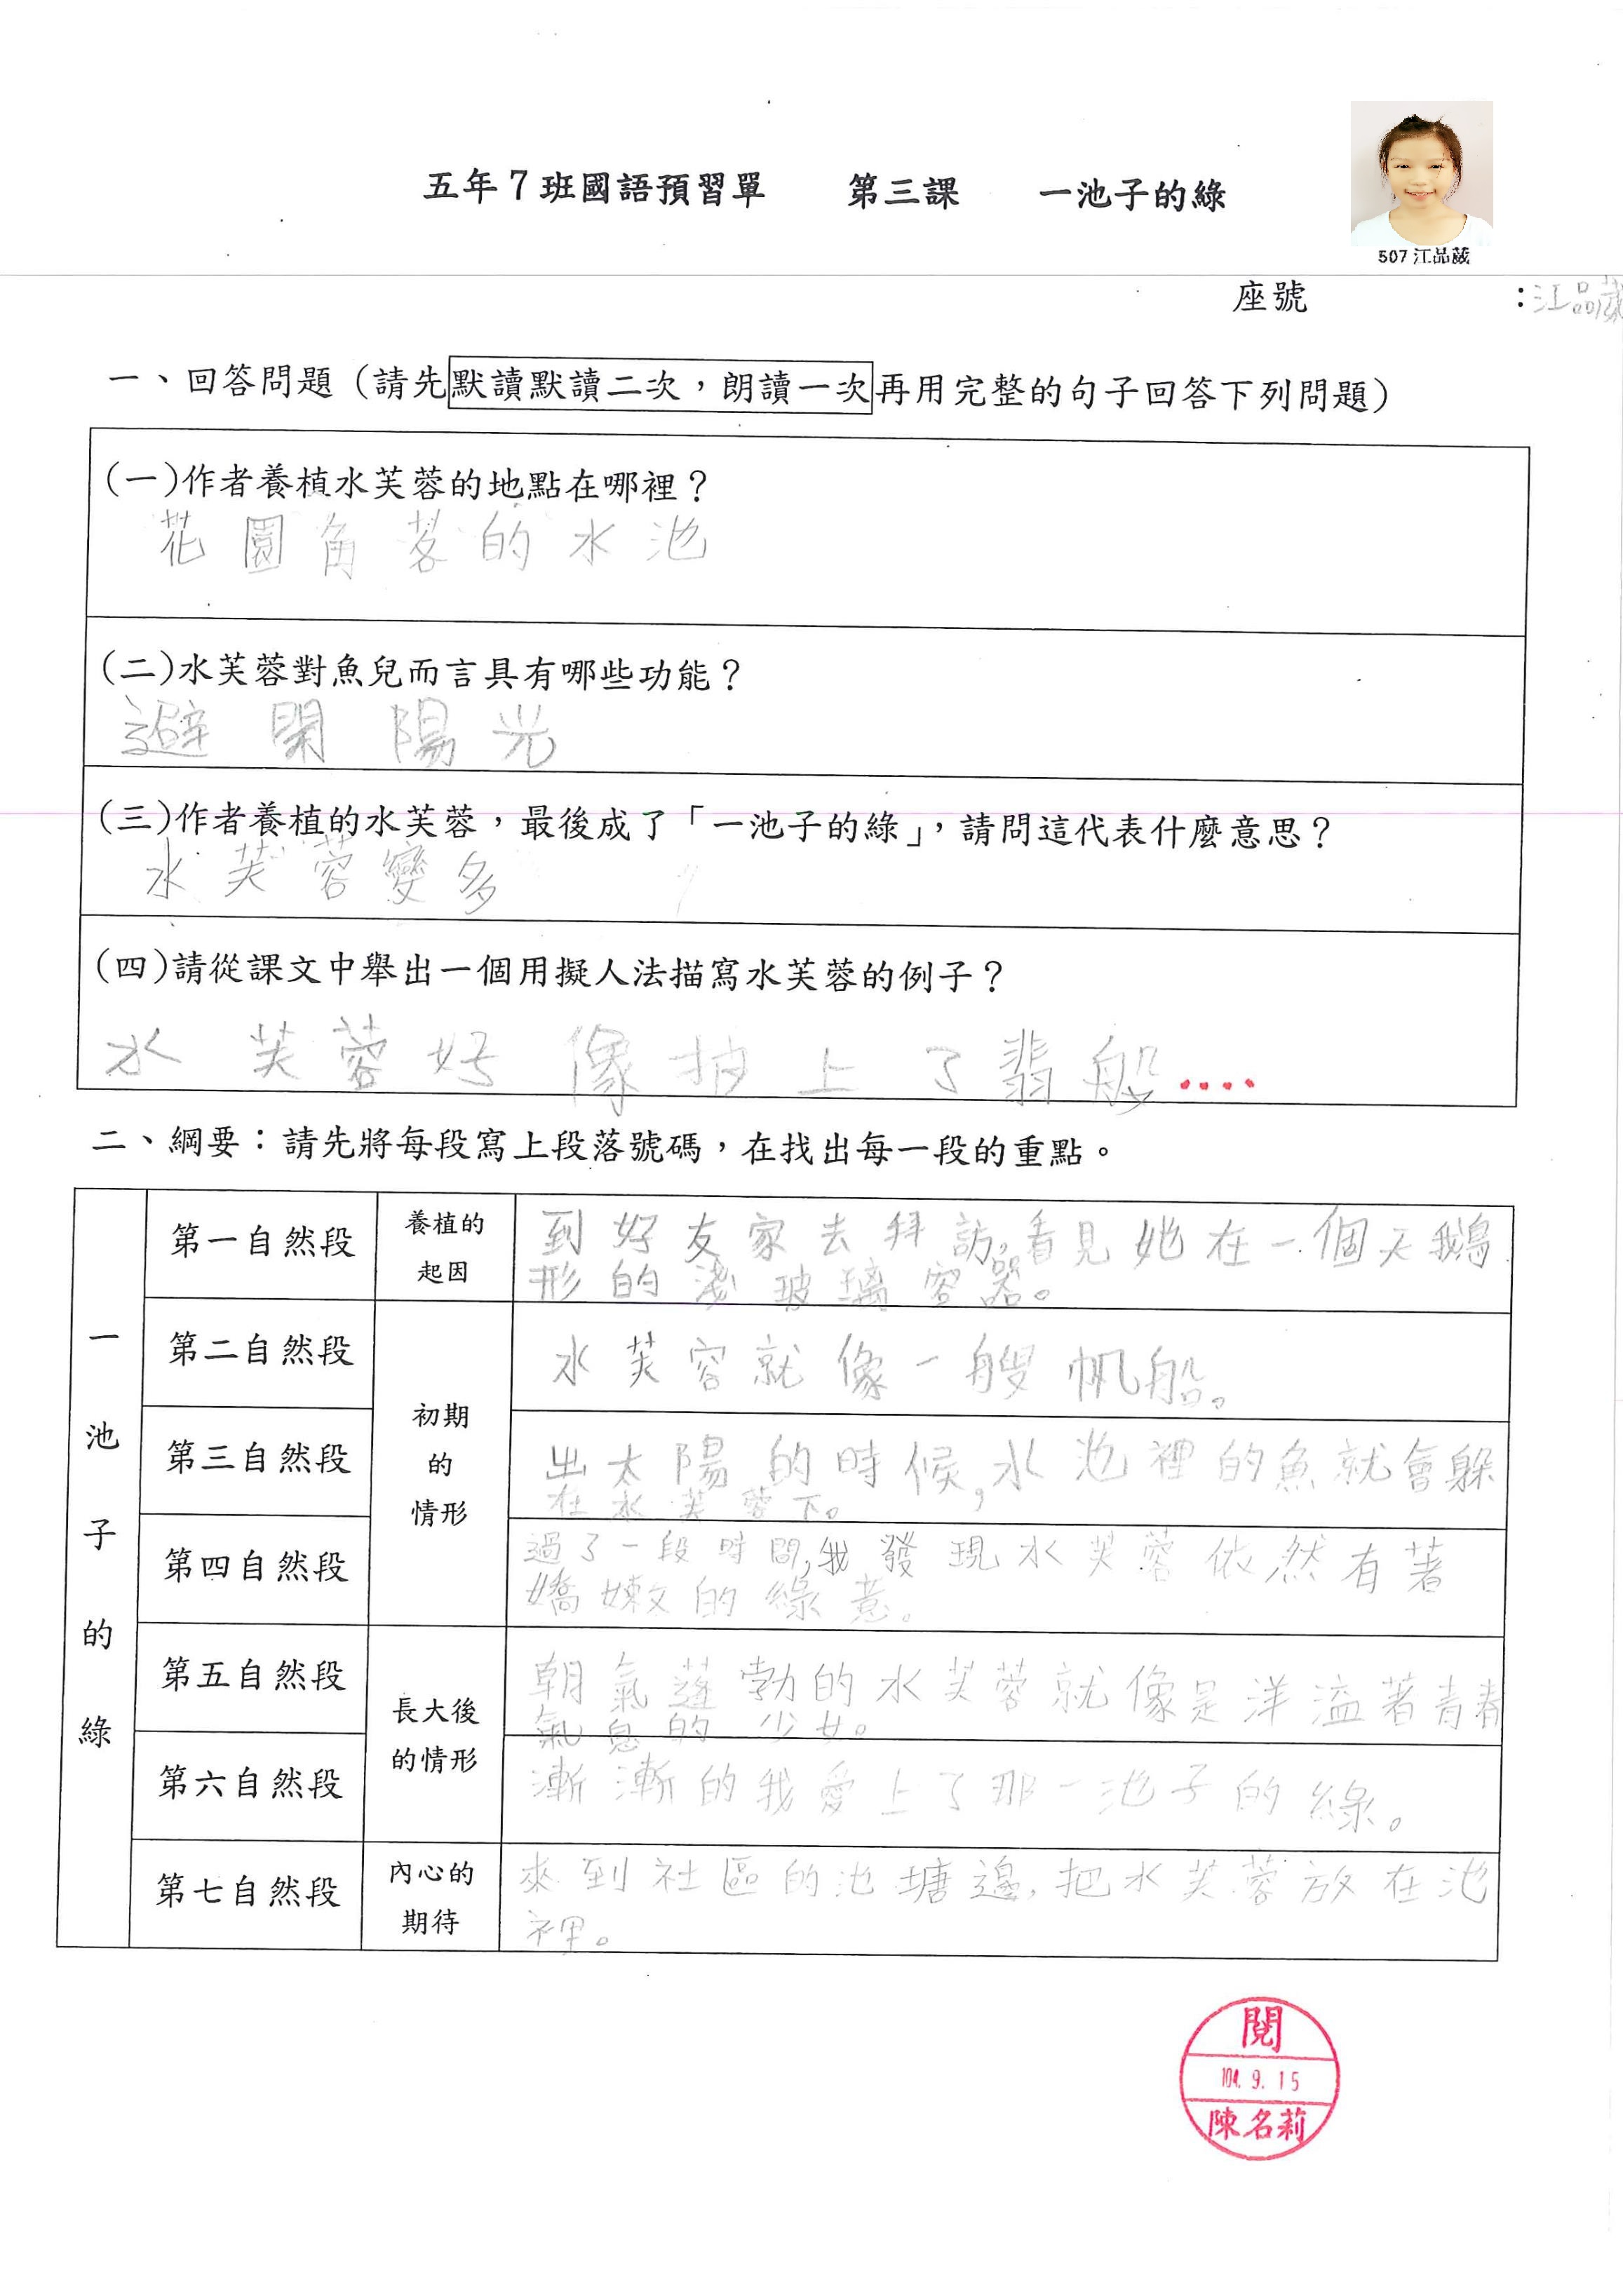 五年7班國語預習單　第三課　一池子的綠
507 江品葳
座號　：江品葳
一、回答問題（請先默讀默讀二次，朗讀一次再用完整的句子回答下列問題）
(一)作者養植水芙蓉的地點在哪裡？
花園角落的水池
(二)水芙蓉對魚兒而言具有哪些功能？
避開陽光
(三)作者養植的水芙蓉，最後成了「一池子的綠」，請問這代表什麼意思？
水芙蓉變多
(四)請從課文中舉出一個用擬人法描寫水芙蓉的例子？
水芙蓉好像披上了翡般····
二、綱要：請先將每段寫上段落號碼，在找出每一段的重點。
一池子的綠
第一自然段
養植的
起因
到好友家去拜訪，看見她在一個天鵝
形的淺玻璃容器。
第二自然段
初期
的
情形
水芙容就像一艘帆船。
第三自然段
出太陽的時候，水池裡的魚就會躲
在水芙蓉下。
第四自然段
過了一段時間，我發現水芙蓉依然有著
嬌嫩的綠意。
第五自然段
長大後
的情形
朝氣蓬勃的水芙蓉就像是洋溢著青春
氣息的少女。
第六自然段
漸漸的我愛上了那一池子的綠。
第七自然段
內心的
期待
來到社區的池塘邊，把水芙蓉放在池
裡。
閱
104.9.15
陳名莉